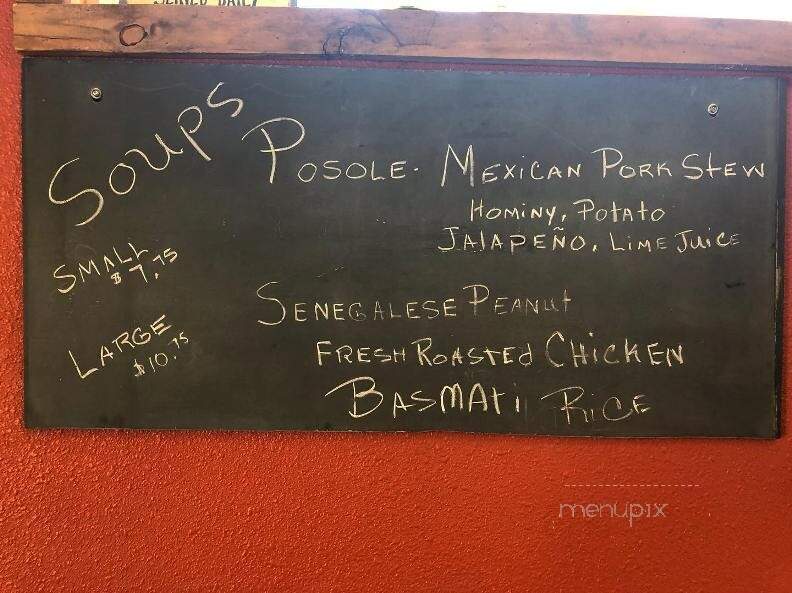 SERVED DAILY
Soups
POSOLE- MEXICAN PORK STEW
HOMINY, POTATO
JALAPEÑO, LIME JUICE
SMALL
$7.75
SENEGALESE PEANUT
FRESH ROASTED CHICKEN
BASMATI RICE
LARGE
$10.75
menupix